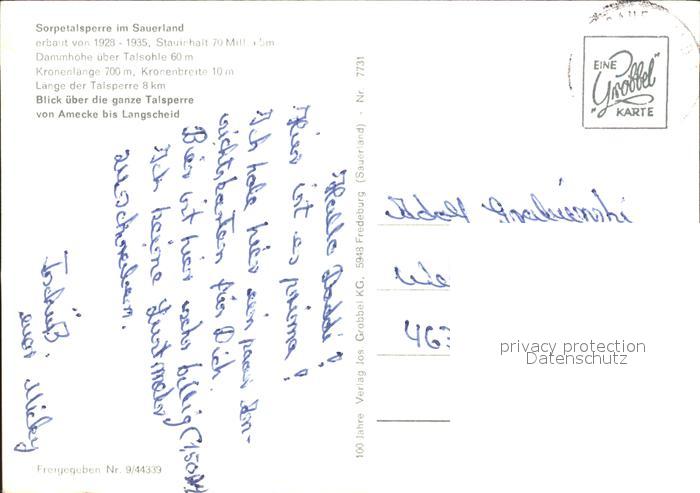 Sorpetalsperre im Sauerland
erbaut von 1928 - 1935, Stauinhalt 70 Mill. cbm
Dammhöhe über Talsohle 60 m
Kronenlänge 700 m, Kronenbreite 10 m
Länge der Talsperre 8 km
Blick über die ganze Talsperre
von Amecke bis Langscheid
Hallo Daddi!
Hier ist es prima!
Ich habe hier ein paar An-
sichtskarten für Dich.
Bier ist hier sehr billig (1,50 DM
Ich keine Lust mehr
zu schreiben.
Tschüß.
euer Micky
Freigegeben Nr. 9/44339
100 Jahre Verlag Jos. Grobbel KG, 5948 Fredeburg (Sauerland) - Nr. 7731
EINE
"Grobbel"
KARTE
Adolf
Wie
463
privacy protection
Datenschutz